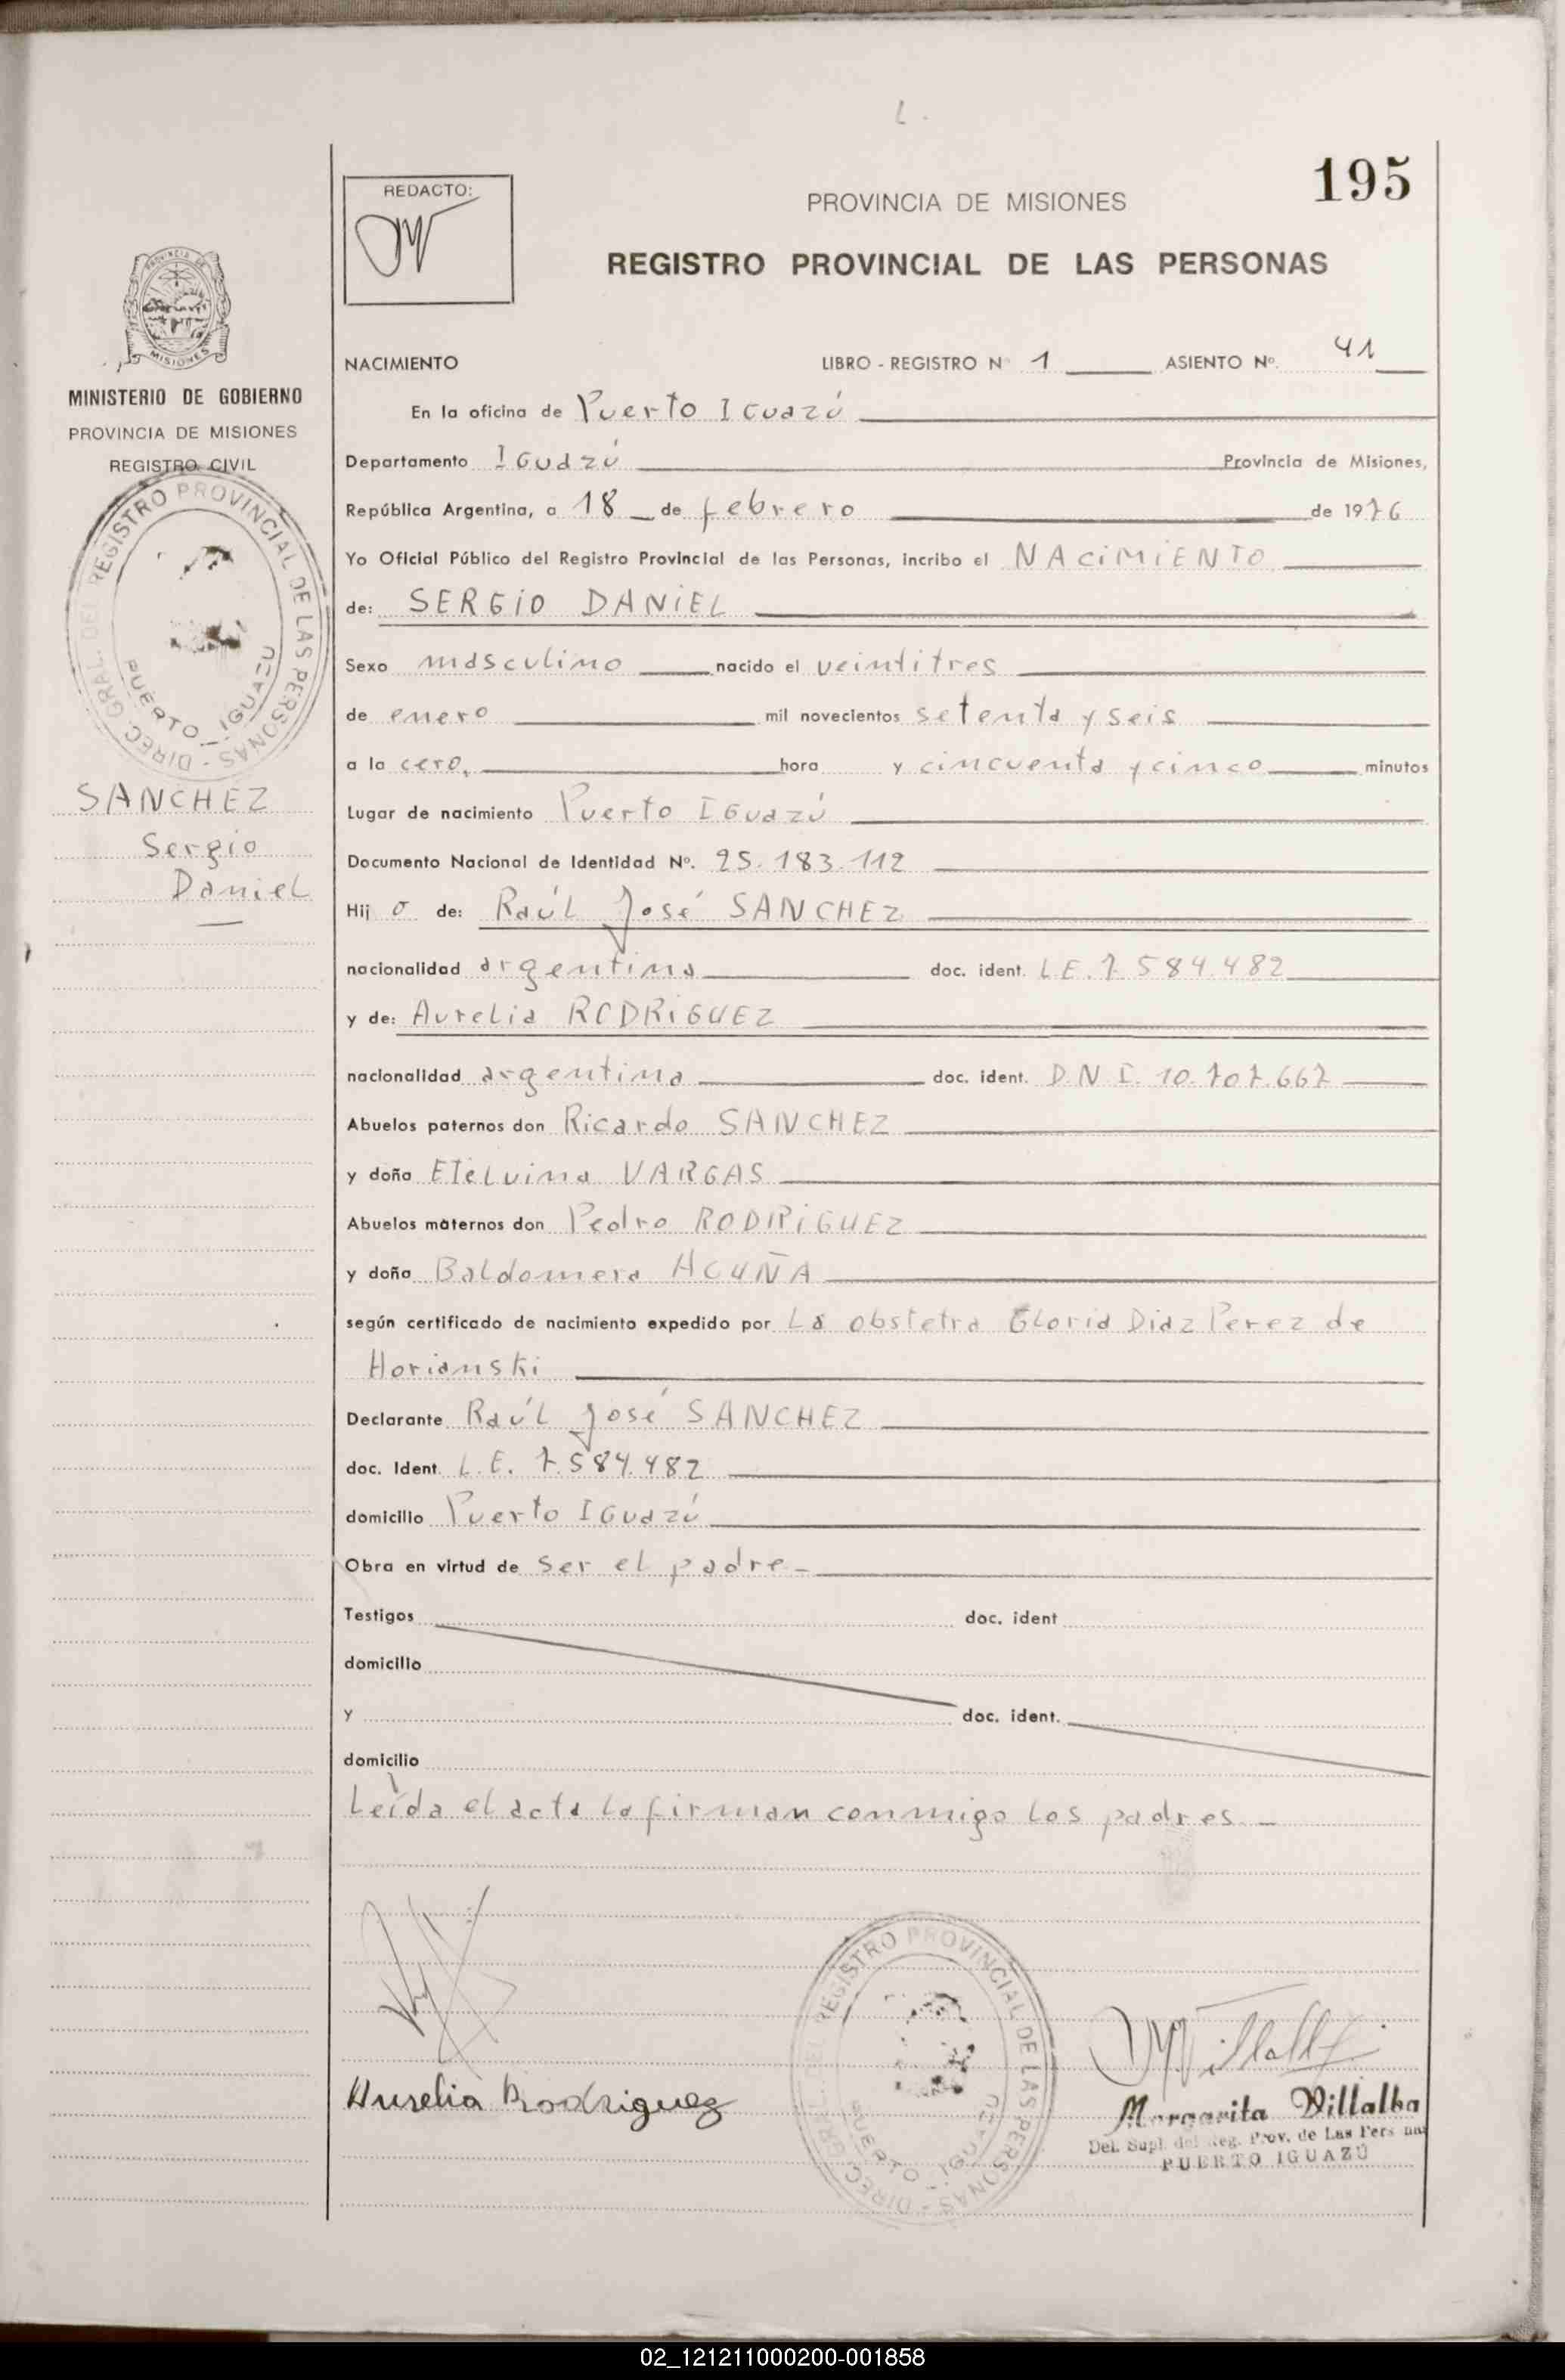 195
REDACTO:
PROVINCIA DE MISIONES
REGISTRO PROVINCIAL DE LAS PERSONAS
PROVINCIA DE
MISIONES
MINISTERIO DE GOBIERNO
PROVINCIA DE MISIONES
REGISTRO CIVIL
DIREC. GRAL. DEL REGISTRO PROVINCIAL DE LAS PERSONAS -
PUERTO - IGUAZU
SANCHEZ
Sergio
Daniel
NACIMIENTO LIBRO - REGISTRO Nº 1 ASIENTO Nº. 41
En la oficina de Puerto Iguazú
Departamento Iguazú Provincia de Misiones,
República Argentina, a 18 de febrero de 1976
Yo Oficial Público del Registro Provincial de las Personas, incribo el NACiMiENTO
de: SERGiO DANiEL
Sexo masculino nacido el veintitres
de enero mil novecientos setenta y seis
a la cero, hora y cincuenta y cinco minutos
Lugar de nacimiento Puerto Iguazú
Documento Nacional de Identidad Nº. 25.183.112
Hij o de: Raúl José SANCHEZ
nacionalidad argentina doc. ident. L.E. 7.584.482
y de: Aurelia RODRiGUEZ
nacionalidad argentina doc. ident. D.N.I. 10.707.667
Abuelos paternos don Ricardo SANCHEZ
y doña Etelvina VARGAS
Abuelos maternos don Pedro RODRiGUEZ
y doña Baldomera ACUÑA
según certificado de nacimiento expedido por La obstetra Gloria Diaz Perez de
Horianski
Declarante Raúl José SANCHEZ
doc. Ident. L.E. 7.584.482
domicilio Puerto Iguazú
Obra en virtud de ser el padre -
Testigos doc. ident
domicilio
y doc. ident.
domicilio
Leída el acta la firman conmigo los padres -
Aurelia Rodriguez
DIREC. GRAL. DEL REGISTRO PROVINCIAL DE LAS PERSONAS -
PUERTO - IGUAZU
MVillalba
Margarita Villalba
Del. Supl. del Reg. Prov. de Las Personas
PUERTO IGUAZÚ
02_121211000200-001858